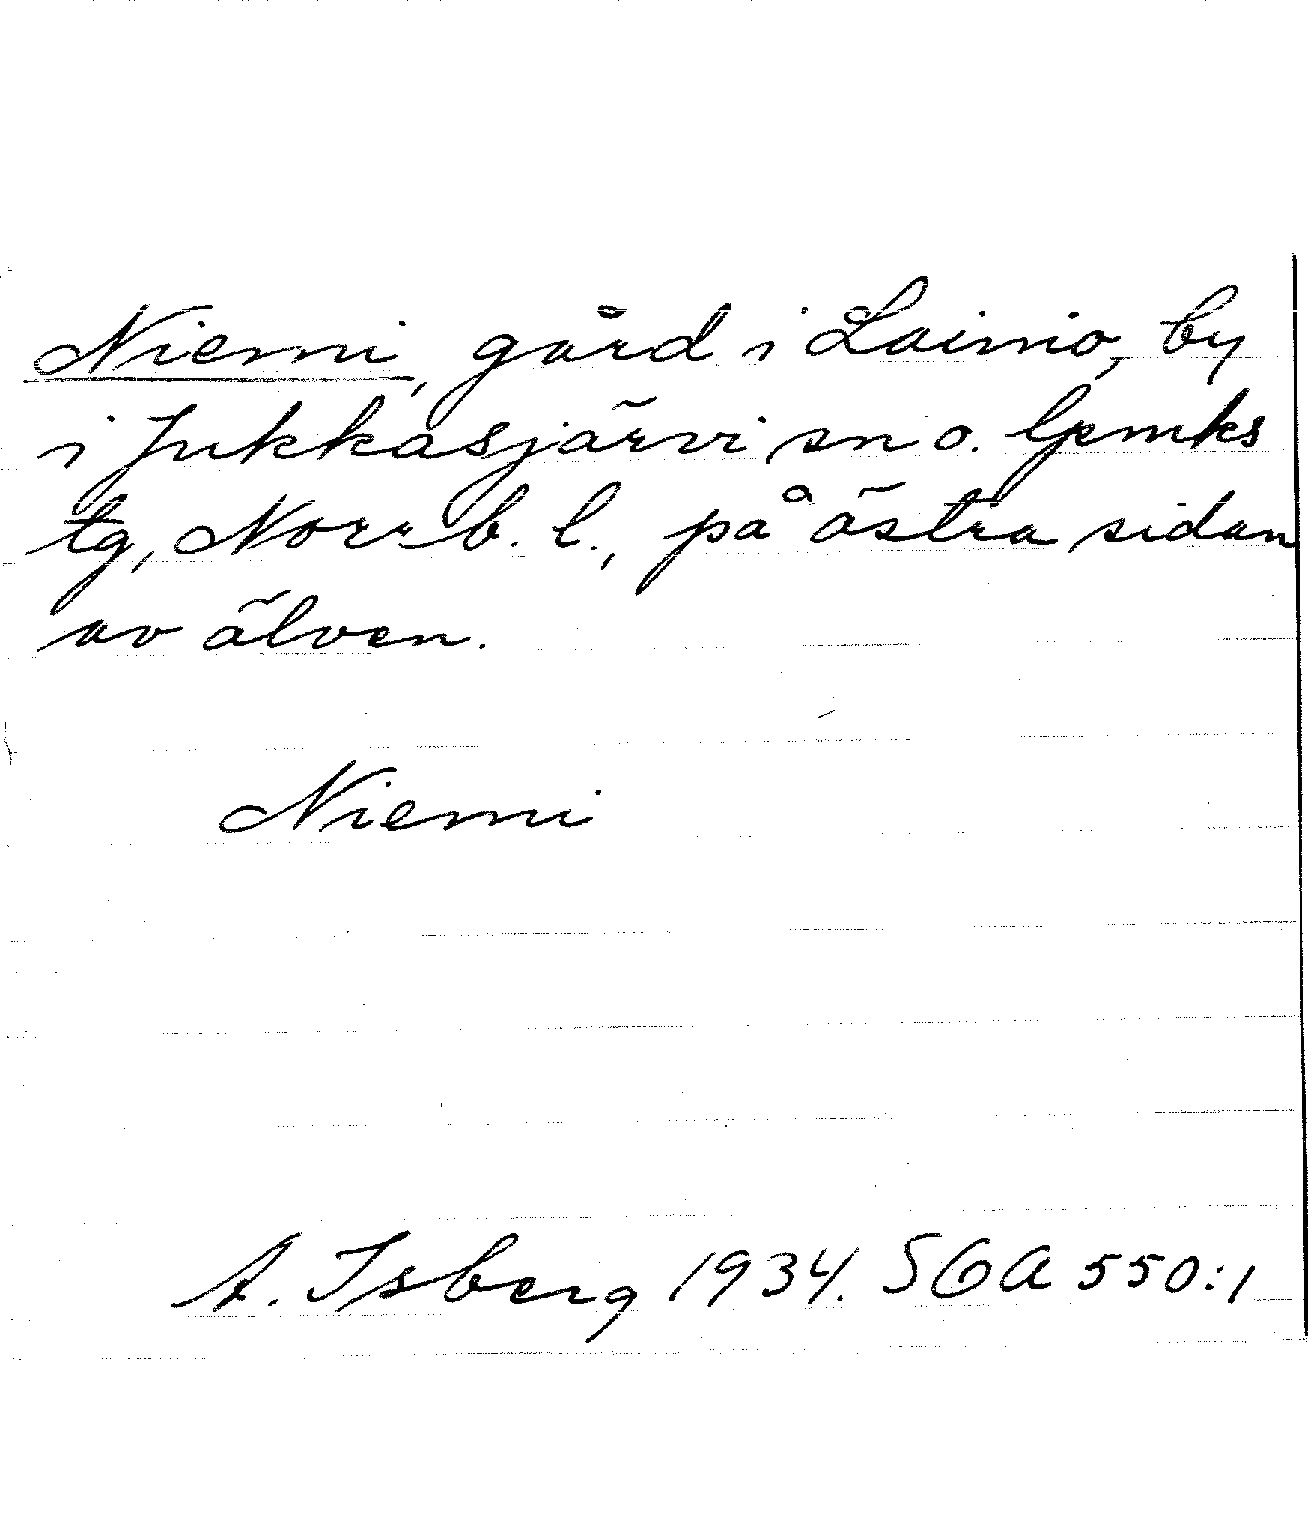 Niemi, gård i Lainio, by
i Jukkasjärvi sn o. lpmks
tg, Norrb. l., på östra sidan
av älven.
Niemi
A. Isberg 1934. SGA 550:1